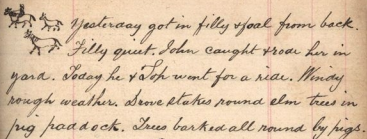 Yesterday got in filly & foal from back.
Filly quiet. John caught & rode her in
yard. Today he & Toh went for a ride. Windy
rough weather. Drove stakes round elm trees in
pig paddock. Trees barked all round by pigs.